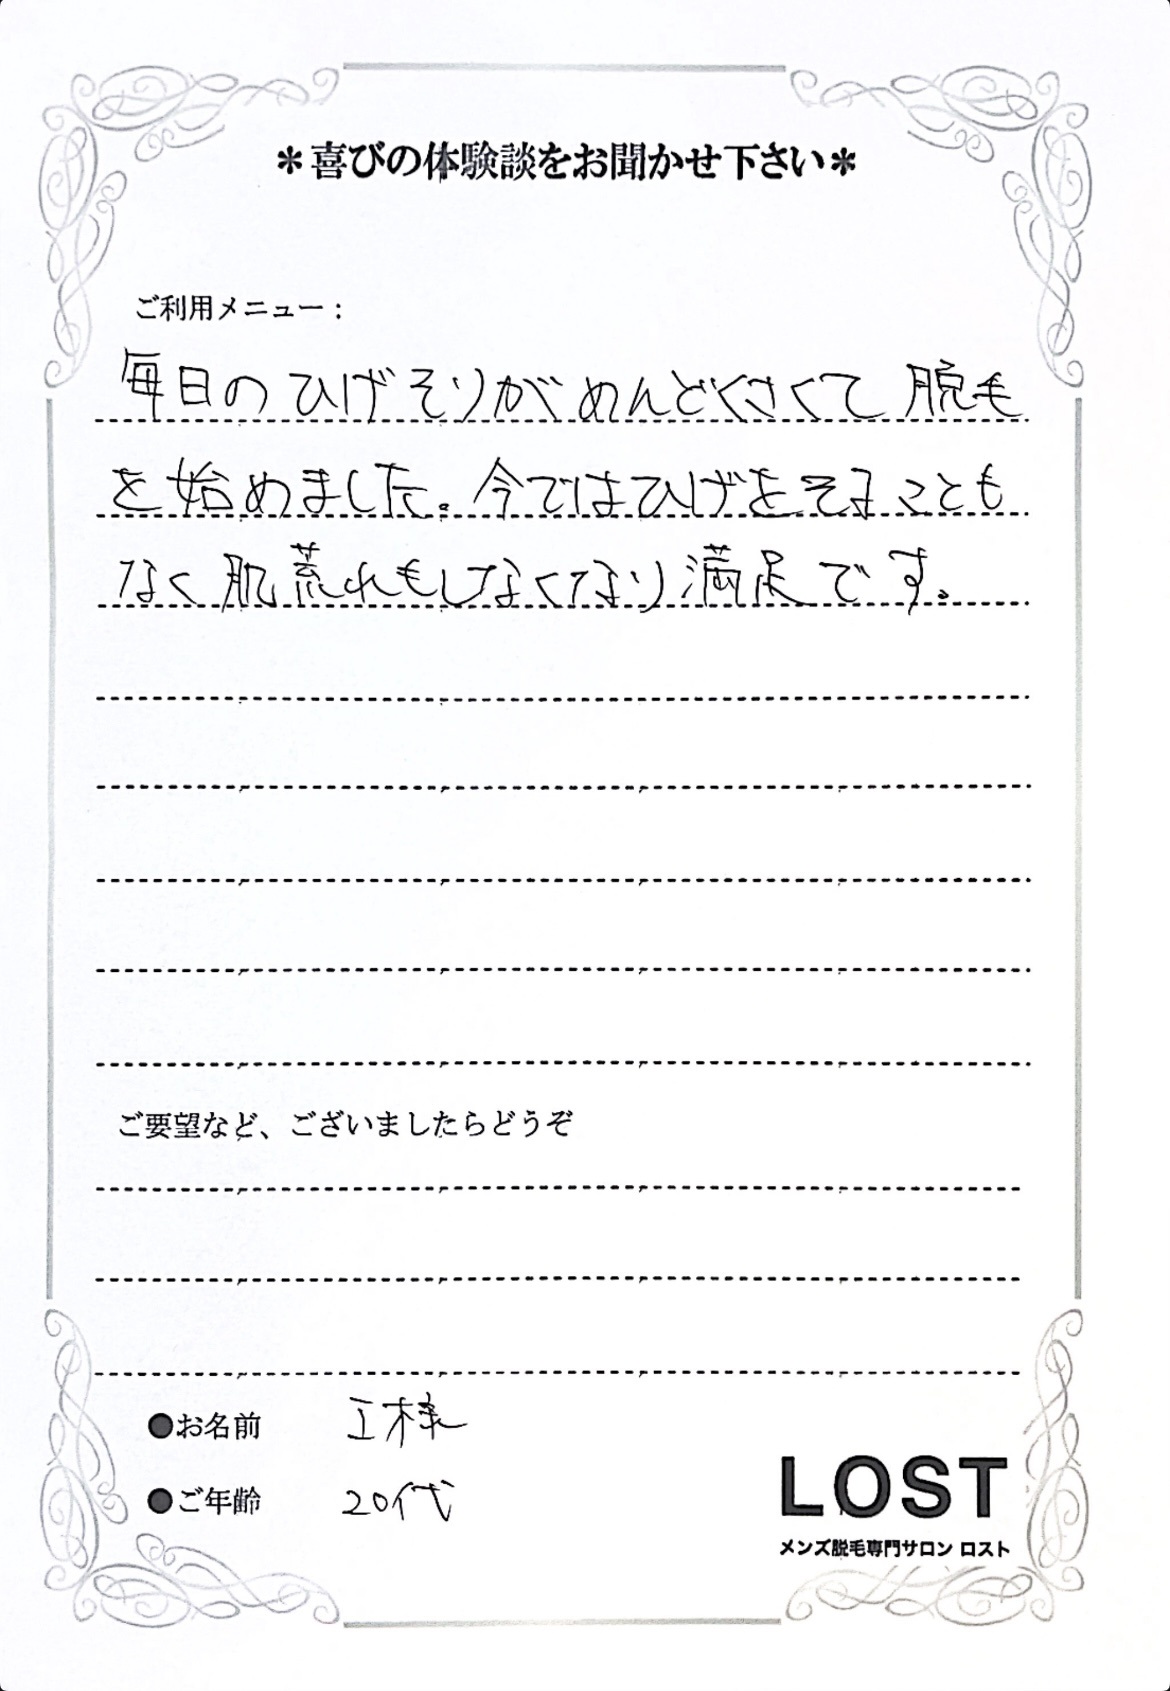 ＊喜びの体験談をお聞かせ下さい＊
ご利用メニュー：
毎日のひげそりがめんどくさくて脱毛
を始めました。今ではひげをそることも
なく肌荒れもしなくなり満足です。
ご要望など、ございましたらどうぞ
●お名前 I様
●ご年齢 20代
LOST
メンズ脱毛専門サロン ロスト